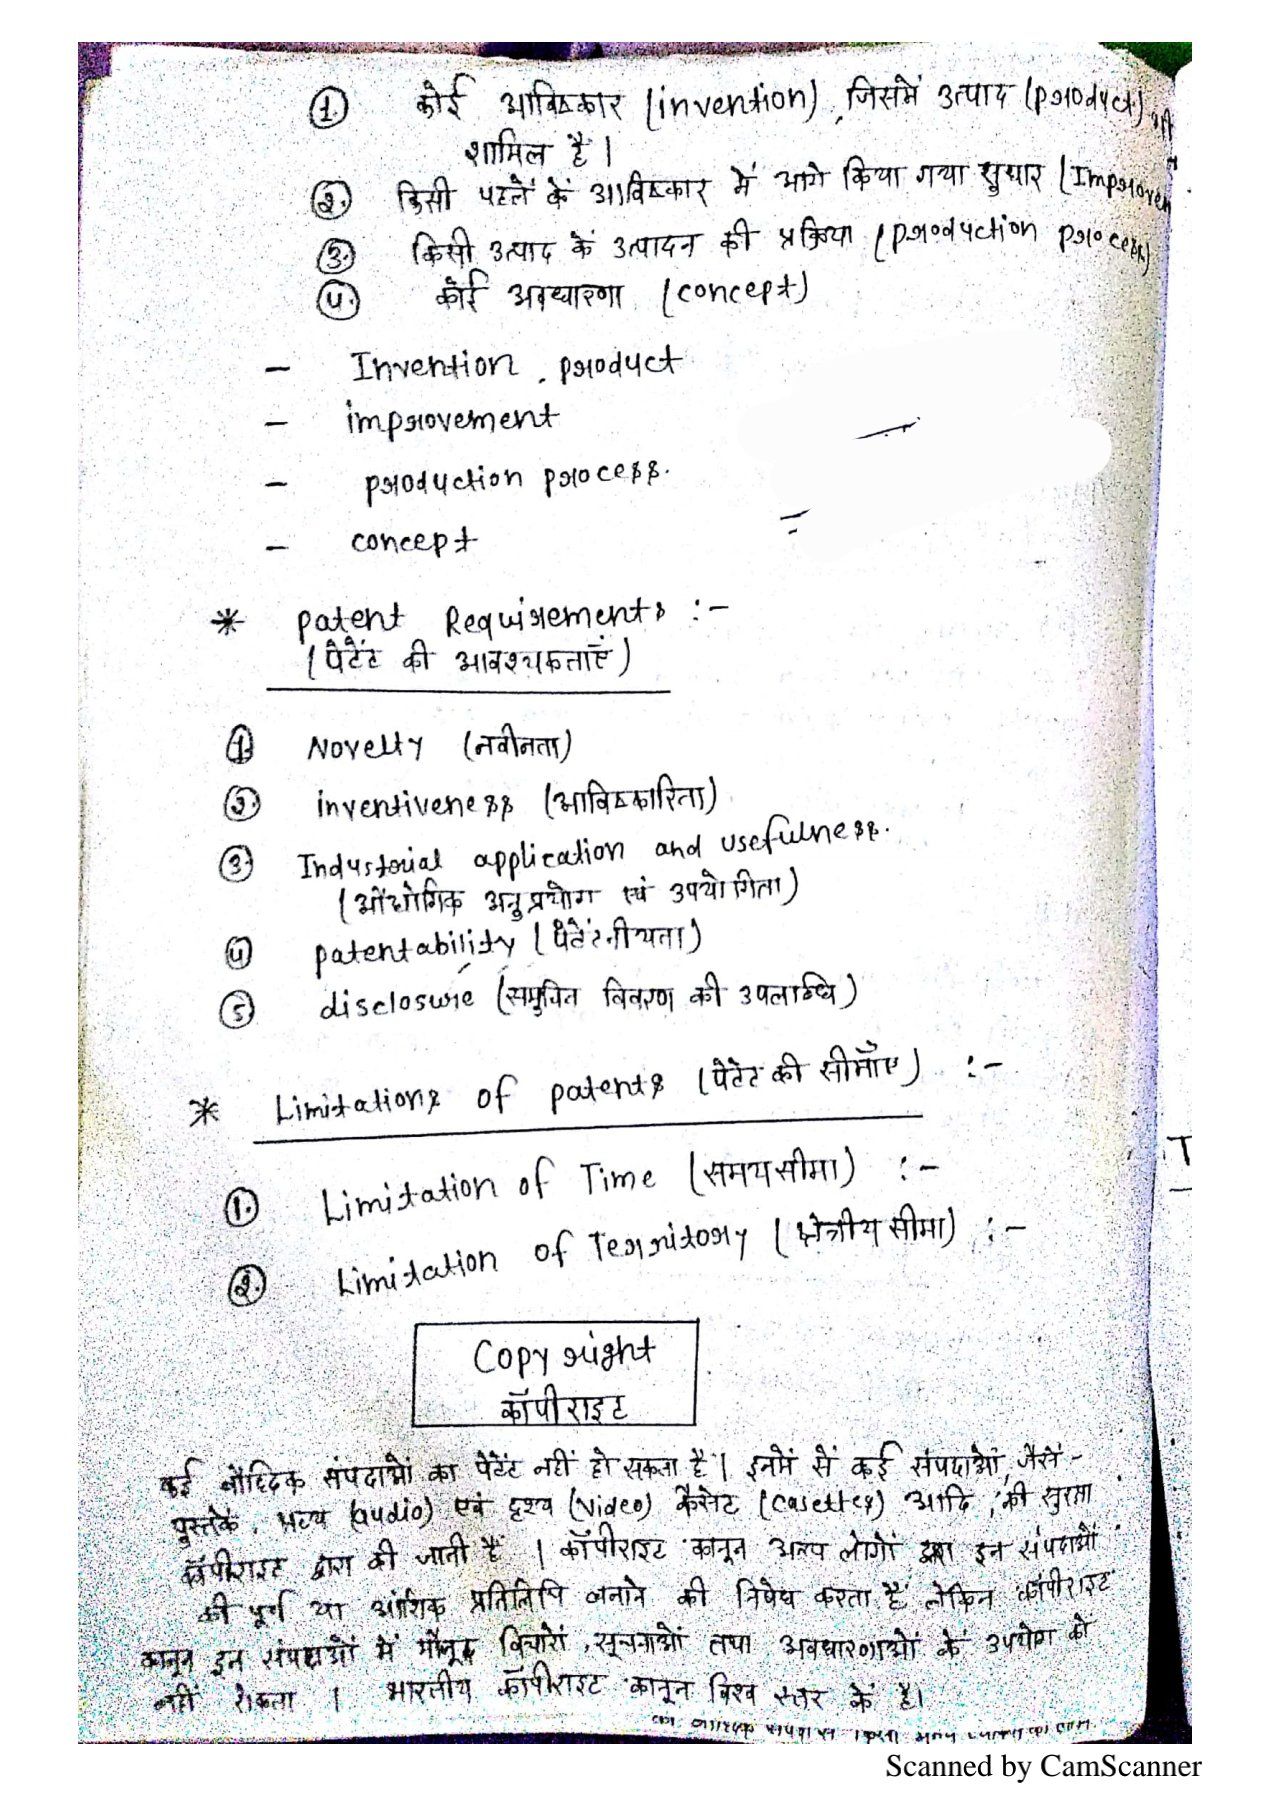 1. कोई आविष्कार (invention), जिसमें उत्पाद (product) भी
शामिल है।
2. किसी पहलें कें आविष्कार में आगे किया गया सुधार (Improvem
3. किसी उत्पाद कें उत्पादन की प्रक्रिया (production process)
4. कोई अवधारणा (concept)
- Invention, product
- improvement
- production process.
- concept
* patent Requirements :-
(पेटेंट की आवश्यकताएं)
1 Novelty (नवीनता)
2 inventiveness (आविष्कारिता)
3. Industrial application and usefulness.
(औद्योगिक अनुप्रयोग एवं उपयोगिता)
4 patentability (पेटेंटनीयता)
5 disclosure (समुचित विवरण की उपलब्धि)
* Limitations of patents (पेटेंट की सीमाँए) :-
1. Limitation of Time (समयसीमा) :-
2. Limitation of Territory (क्षेत्रीय सीमा) :-
Copyright
कॉपीराइट
कई बौद्धिक संपदाओं का पेटेंट नहीं हो सकता है। इनमें सें कई संपदाओं, जैसें-
पुस्तकें, श्रव्य (audio) एवं दृश्य (Video) कैसेट (Casettes) आदि, की सुरक्षा
कॉपीराइट द्वारा की जाती हैं । कॉपीराइट कानून अन्य लोगों द्वारा इन संपदाओं
की पूर्ण या आंशिक प्रतिलिपि बनाने की निषेध करता हैं लेकिन कॉपीराइट
कानून इन संपदाओं में मौजूद विचारों, सूचनाओं तथा अवधारणाओं कें उपयोग को
नहीं रोकता । भारतीय कॉपीराइट कानून विश्व स्तर कें है।
Scanned by CamScanner